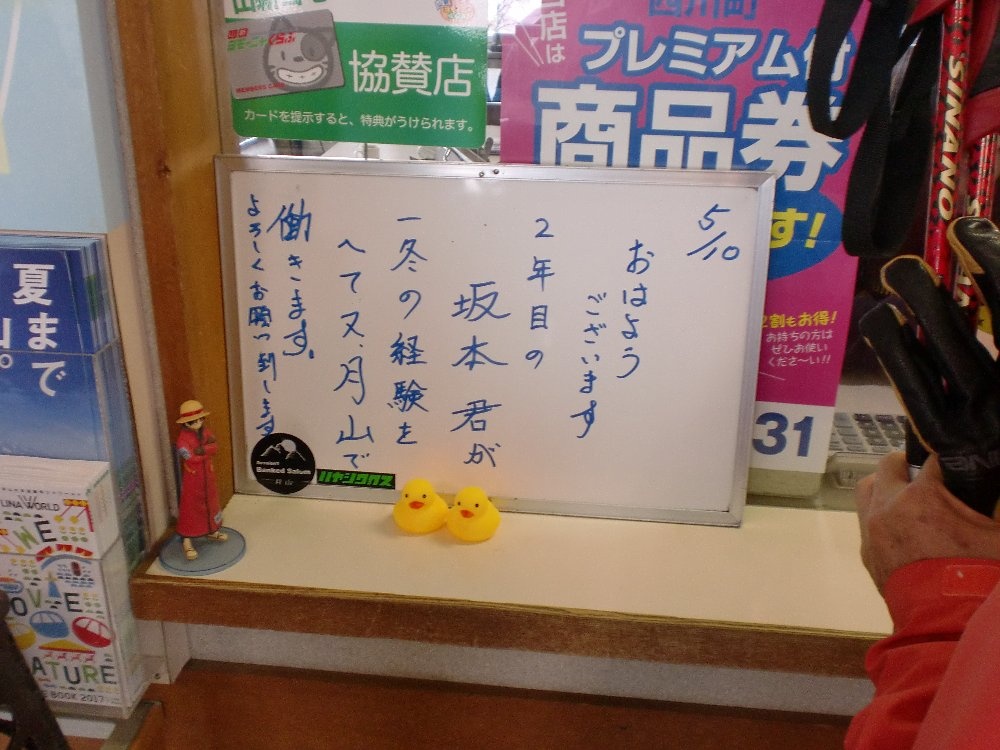 協賛店
カードを提示すると、特典がうけられます。
MEMBERS CARD
西川町
当店は
プレミアム付
商品券
す!
2割もお得!
お持ちの方は
ぜひお使い
くださ〜い!!
31
5/10
おはよう
ございます
2年目の
坂本君が
一冬の経験を
へて又、月山で
働きます。
よろしくお願い致します
Banked Slalom
月山
ハヤシワックス
夏まで
LINA WORLD
WE
LOVE
NATURE
BOOK 2017
SINANO